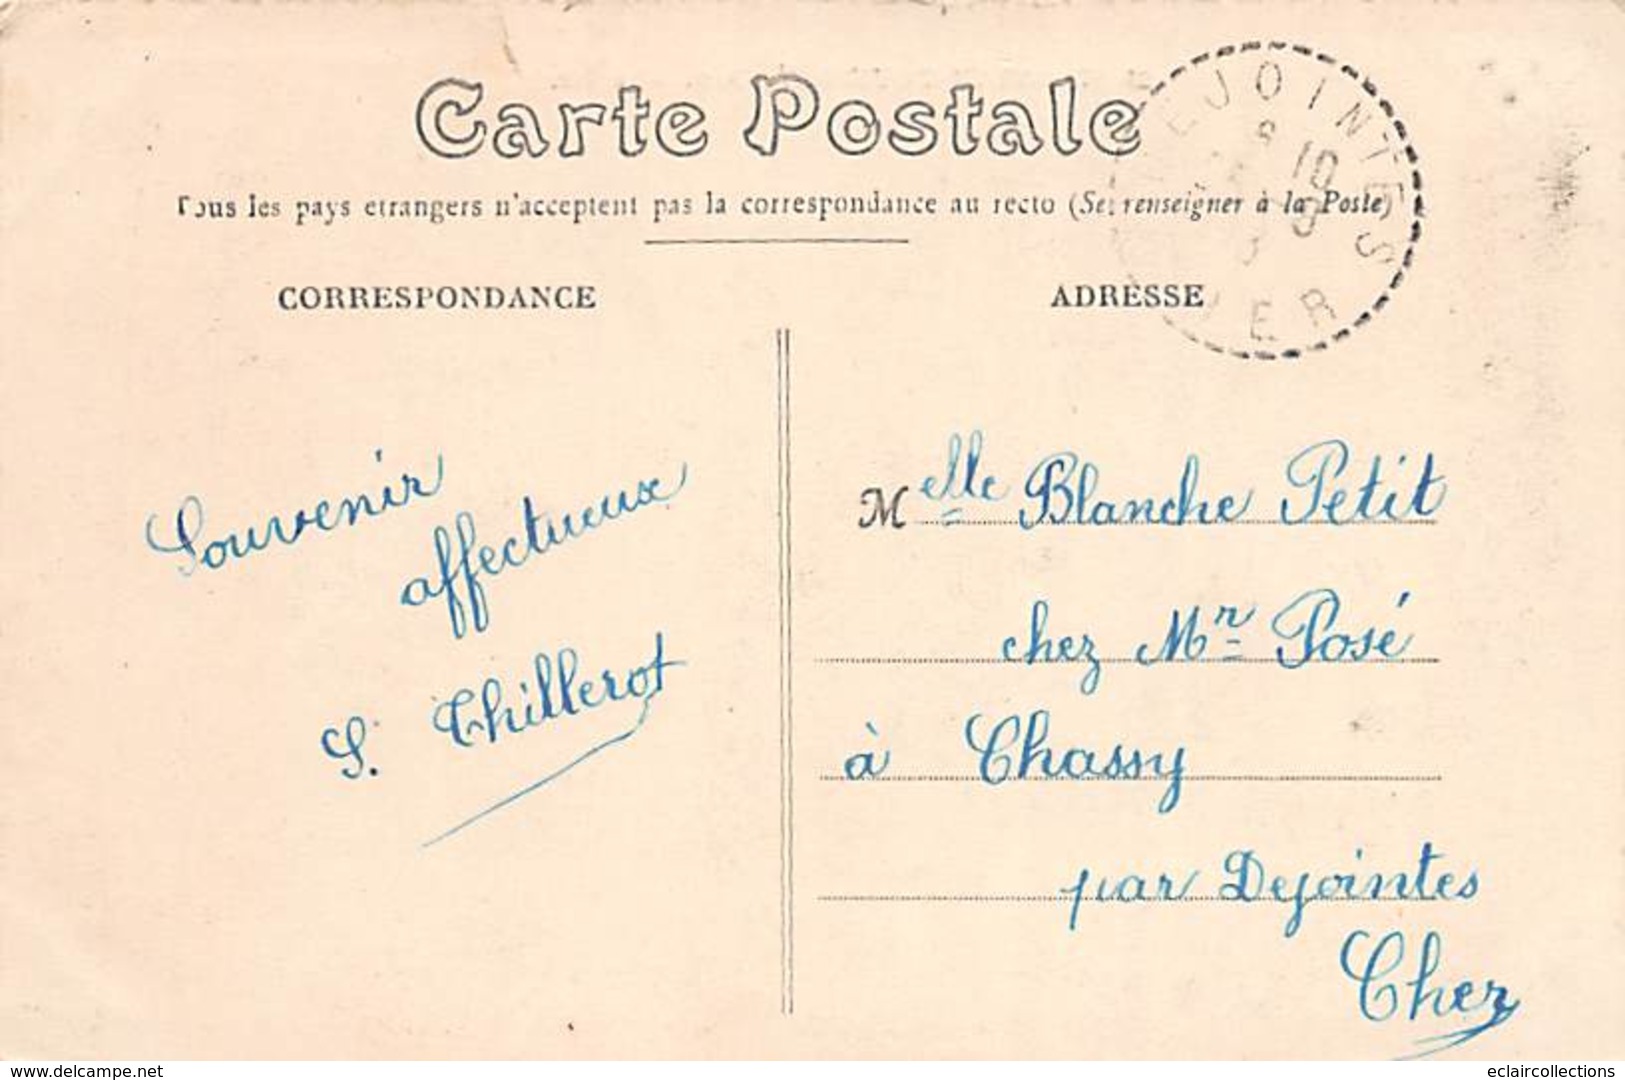 Carte Postale
Tous les pays etrangers n'acceptent pas la correspondance au recto (Se renseigner à la Poste)
CORRESPONDANCE
ADRESSE
EJOINTES
10
ER
Souvenir
affectueux
S. Thillerot
Melle Blanche Petit
chez Mr Posé
à Chassy
par Dejointes
Cher
www.delcampe.net
eclaircollections